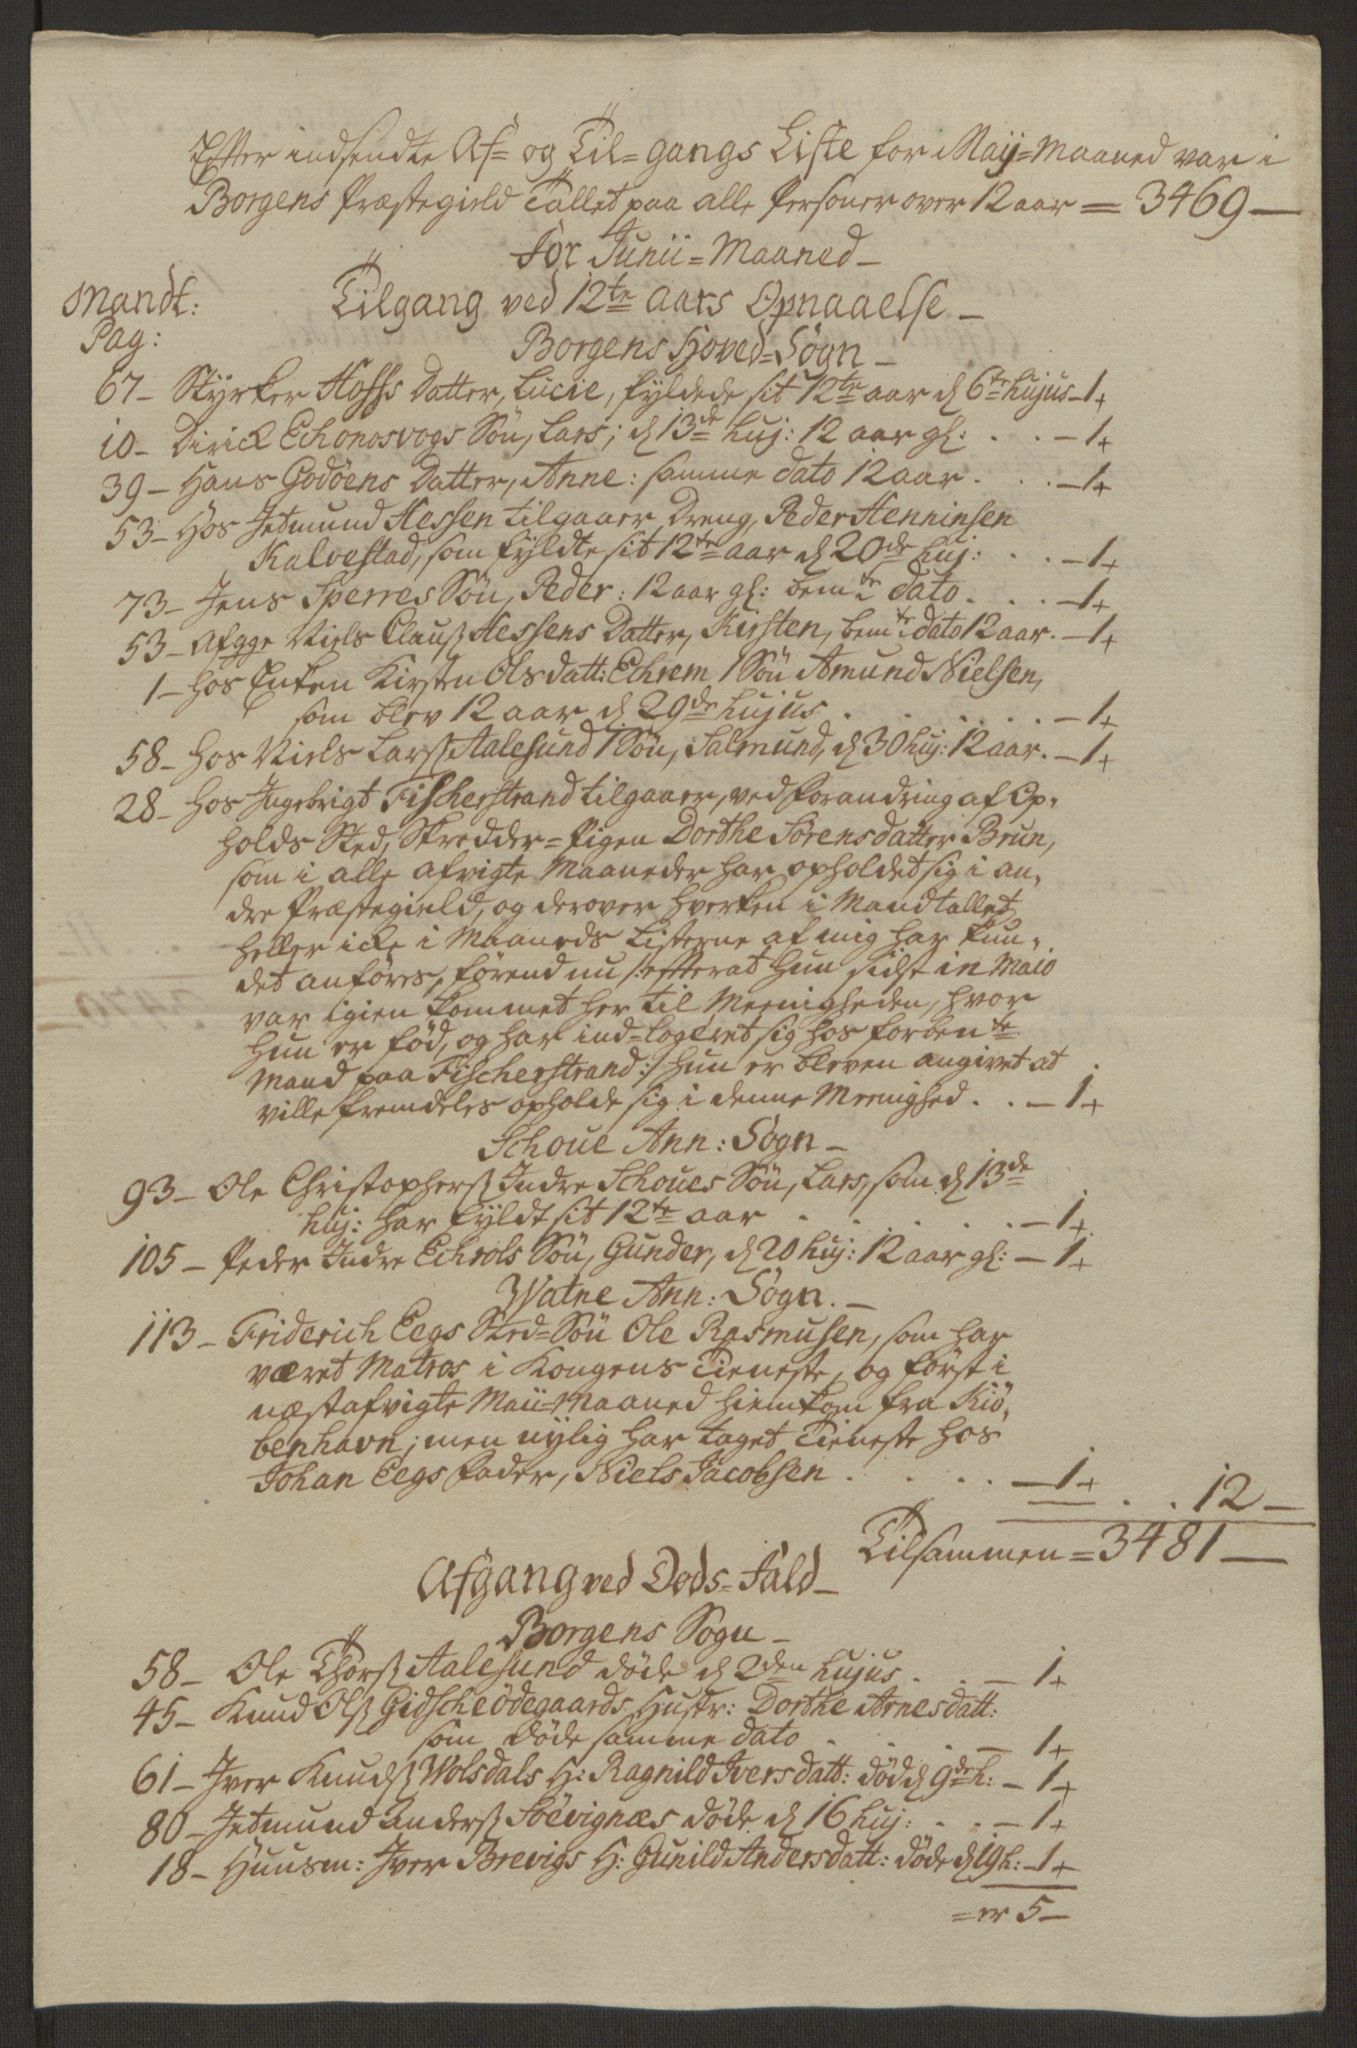 Efter indsendte Af= og Til=gangs Liste for Maij=Maaned var i
Borgens Præstegield Tallet paa alle Personer over 12 aar = 3469 —
For Junii=Maaned —
Mandt: Tilgang ved 12te aars Opnaaelse —
Pag:
Borgens Hoved=Sogn —
67 — Styrker Hoffs Datter, Lucie, fyldede sit 12te aar d 6te hujus — 1 +
10 — Dirick Echonosvogs Søn, Lars; d 13de huj: 12 aar gl: . . . — 1 +
39 — Hans Godøens Datter, Anne: samme dato 12 aar . . . — 1 +
53 — Hos Jetmund Hessen tilgaaer Dreng, Peder Henninsen
Kalvestad, som fyldte sit 12te aar d 20de huj: . . — 1 +
73 — Jens Sperres Søn, Peder: 12 aar gl: bemte dato . . . — 1 +
53 — Afgge Niels Clauss Hessens Datter, Kirsten, bemte dato 12 aar . — 1 +
1 — hos Enken Kirsten Olsdatt: Echrem 1 Søn Amund Nielsen,
som blev 12 aar d 29de hujus . . . . . . — 1 +
58 — hos Niels Larss Aalesund 1 Søn, Salmund, d 30 huj: 12 aar . — 1 +
28 — hos Ingebrigt Fischerstrand tilgaaer, ved forandring af Op,
holds Sted, Skredder=Pigen Dorthe Sørensdatter Brun,
som i alle afvigte Maaneder har opholdet sig i an,
dre Præstegield, og derover hverken i Mandtallet
heller icke i Maaneds Listerne af mig har kun,
det anføres, førend nu /: efterat hun sidst in Maio
var igien kommet her til Meenigheden, hvor
hun er fød, og har ind=logeret sig hos forbente
Mand paa Fischerstrand :/ hun er bleven angivet at
ville fremdeles opholde sig i denne Meenighed . . — 1 +
Schoue Ann: Sogn —
93 — Ole Christopherss Indre Schoues Søn, Lars, som d 13de
huj: har fyldt sit 12te aar . . . . . . — 1 +
105 — Peder Indre Echrols Søn, Gunder, d 20 huj: 12 aar gl: — 1 +
Watne Ann: Sogn. —
113 — Friderich Eegs Sted=Søn Ole Rasmusen, som har
været Matros i Kongens Tieneste, og først i
næstafvigte Maii=Maaned hiemkom fra Kiö,
benhavn; men nylig har taget Tieneste hos
Johan Eegs Fader, Niels Jacobsen . . . . . — 1 +
. . 12 —
Tilsammen = 3481 —
Afgang ved Døds=Fald —
Borgens Sogn —
58 — Ole Thorss Aalesund døde d 2den hujus . . . — 1 +
45 — Knud Olss Gidscheødegaards Hustr: Dorthe Arnesdatt:
som døde samme dato . . . . — 1 +
61 — Iver Knudss Wolsdals H: Ragnild Iversdatt: død d 9de h: — 1 +
80 — Jetmund Anderss Søevignæs døde d 16 huj: . . — 1 +
18 — Huusm: Iver Brevigs H: Gunild Andersdatt: døde d 19 h: — 1 +
= er 5 —